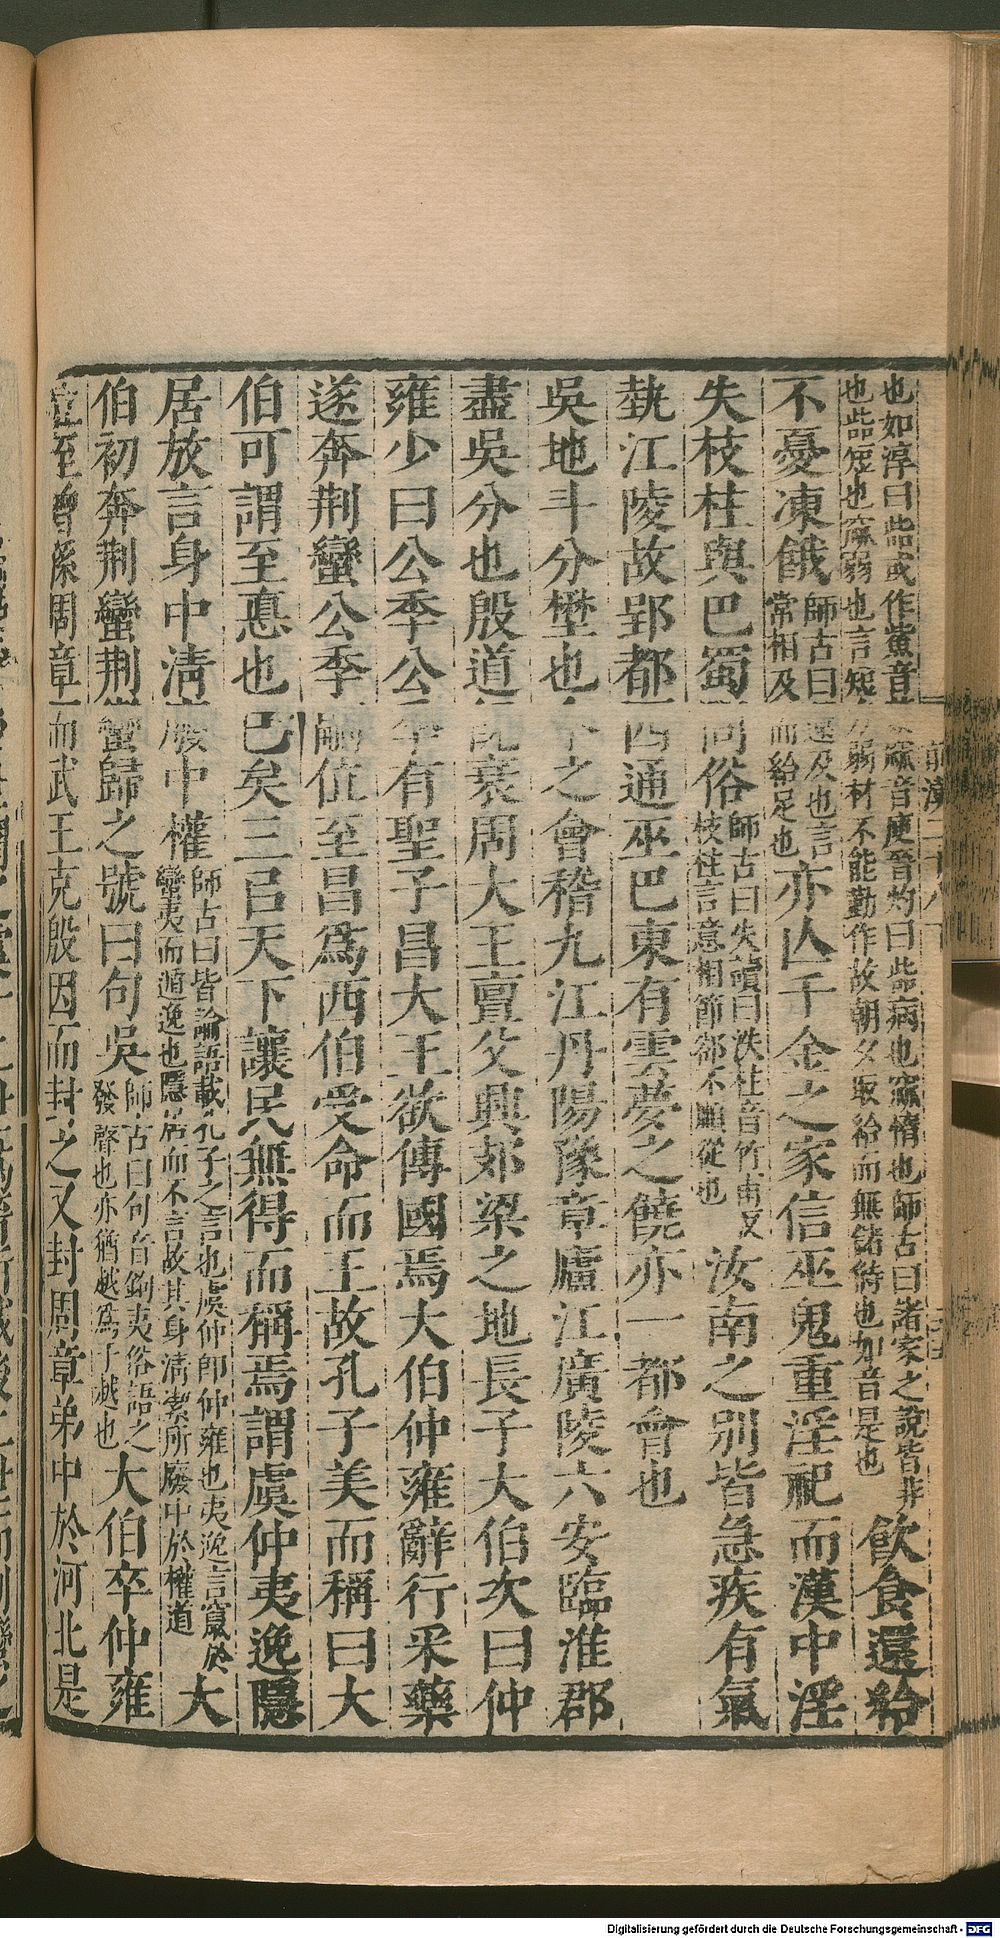 也如淳曰呰或作䱉音紫窳音庾晉灼曰呰病也窳惰也師古曰諸家之說皆非
也呰短也窳弱也言短力弱材不能勤作故朝夕取給而無儲待也如音是也
飲食還給
不憂凍餓
師古曰還及也言
常相及而給足也
亦亾千金之家信巫鬼重淫祀而漢中淫
失枝柱與巴蜀同俗
師古曰失讀曰泆柱音竹甫反
枝柱言意相節郤不順從也
汝南之別皆急疾有氣
埶江陵故郢都西通巫巴東有雲夢之饒亦一都會也
吳地斗分壄也今之會稽九江丹陽豫章廬江廣陵六安臨淮郡
盡吳分也殷道旣衰周大王亶父興郊梁之地長子大伯次曰仲
雍少曰公季公季有聖子昌大王欲傳國焉大伯仲雍辭行采藥
遂奔荆蠻公季嗣位至昌爲西伯受命而王故孔子美而稱曰大
伯可謂至悳也已矣三㠯天下讓民無得而稱焉謂虞仲夷逸隱
居放言身中淸廢中權
師古曰皆論語載孔子之言也虞仲卽仲雍也夷逸言竄於
蠻夷而遁逸也隱居而不言故其身淸潔所廢中於權道
大
伯初奔荆蠻荆蠻歸之號曰句吳
師古曰句音鉤夷俗語之
發聲也亦猶越爲于越也
大伯卒仲雍
立至曾孫周章而武王克殷因而封之又封周章弟中於河北是
前漢二十八下
Digitalisierung gefördert durch die Deutsche Forschungsgemeinschaft - DFG